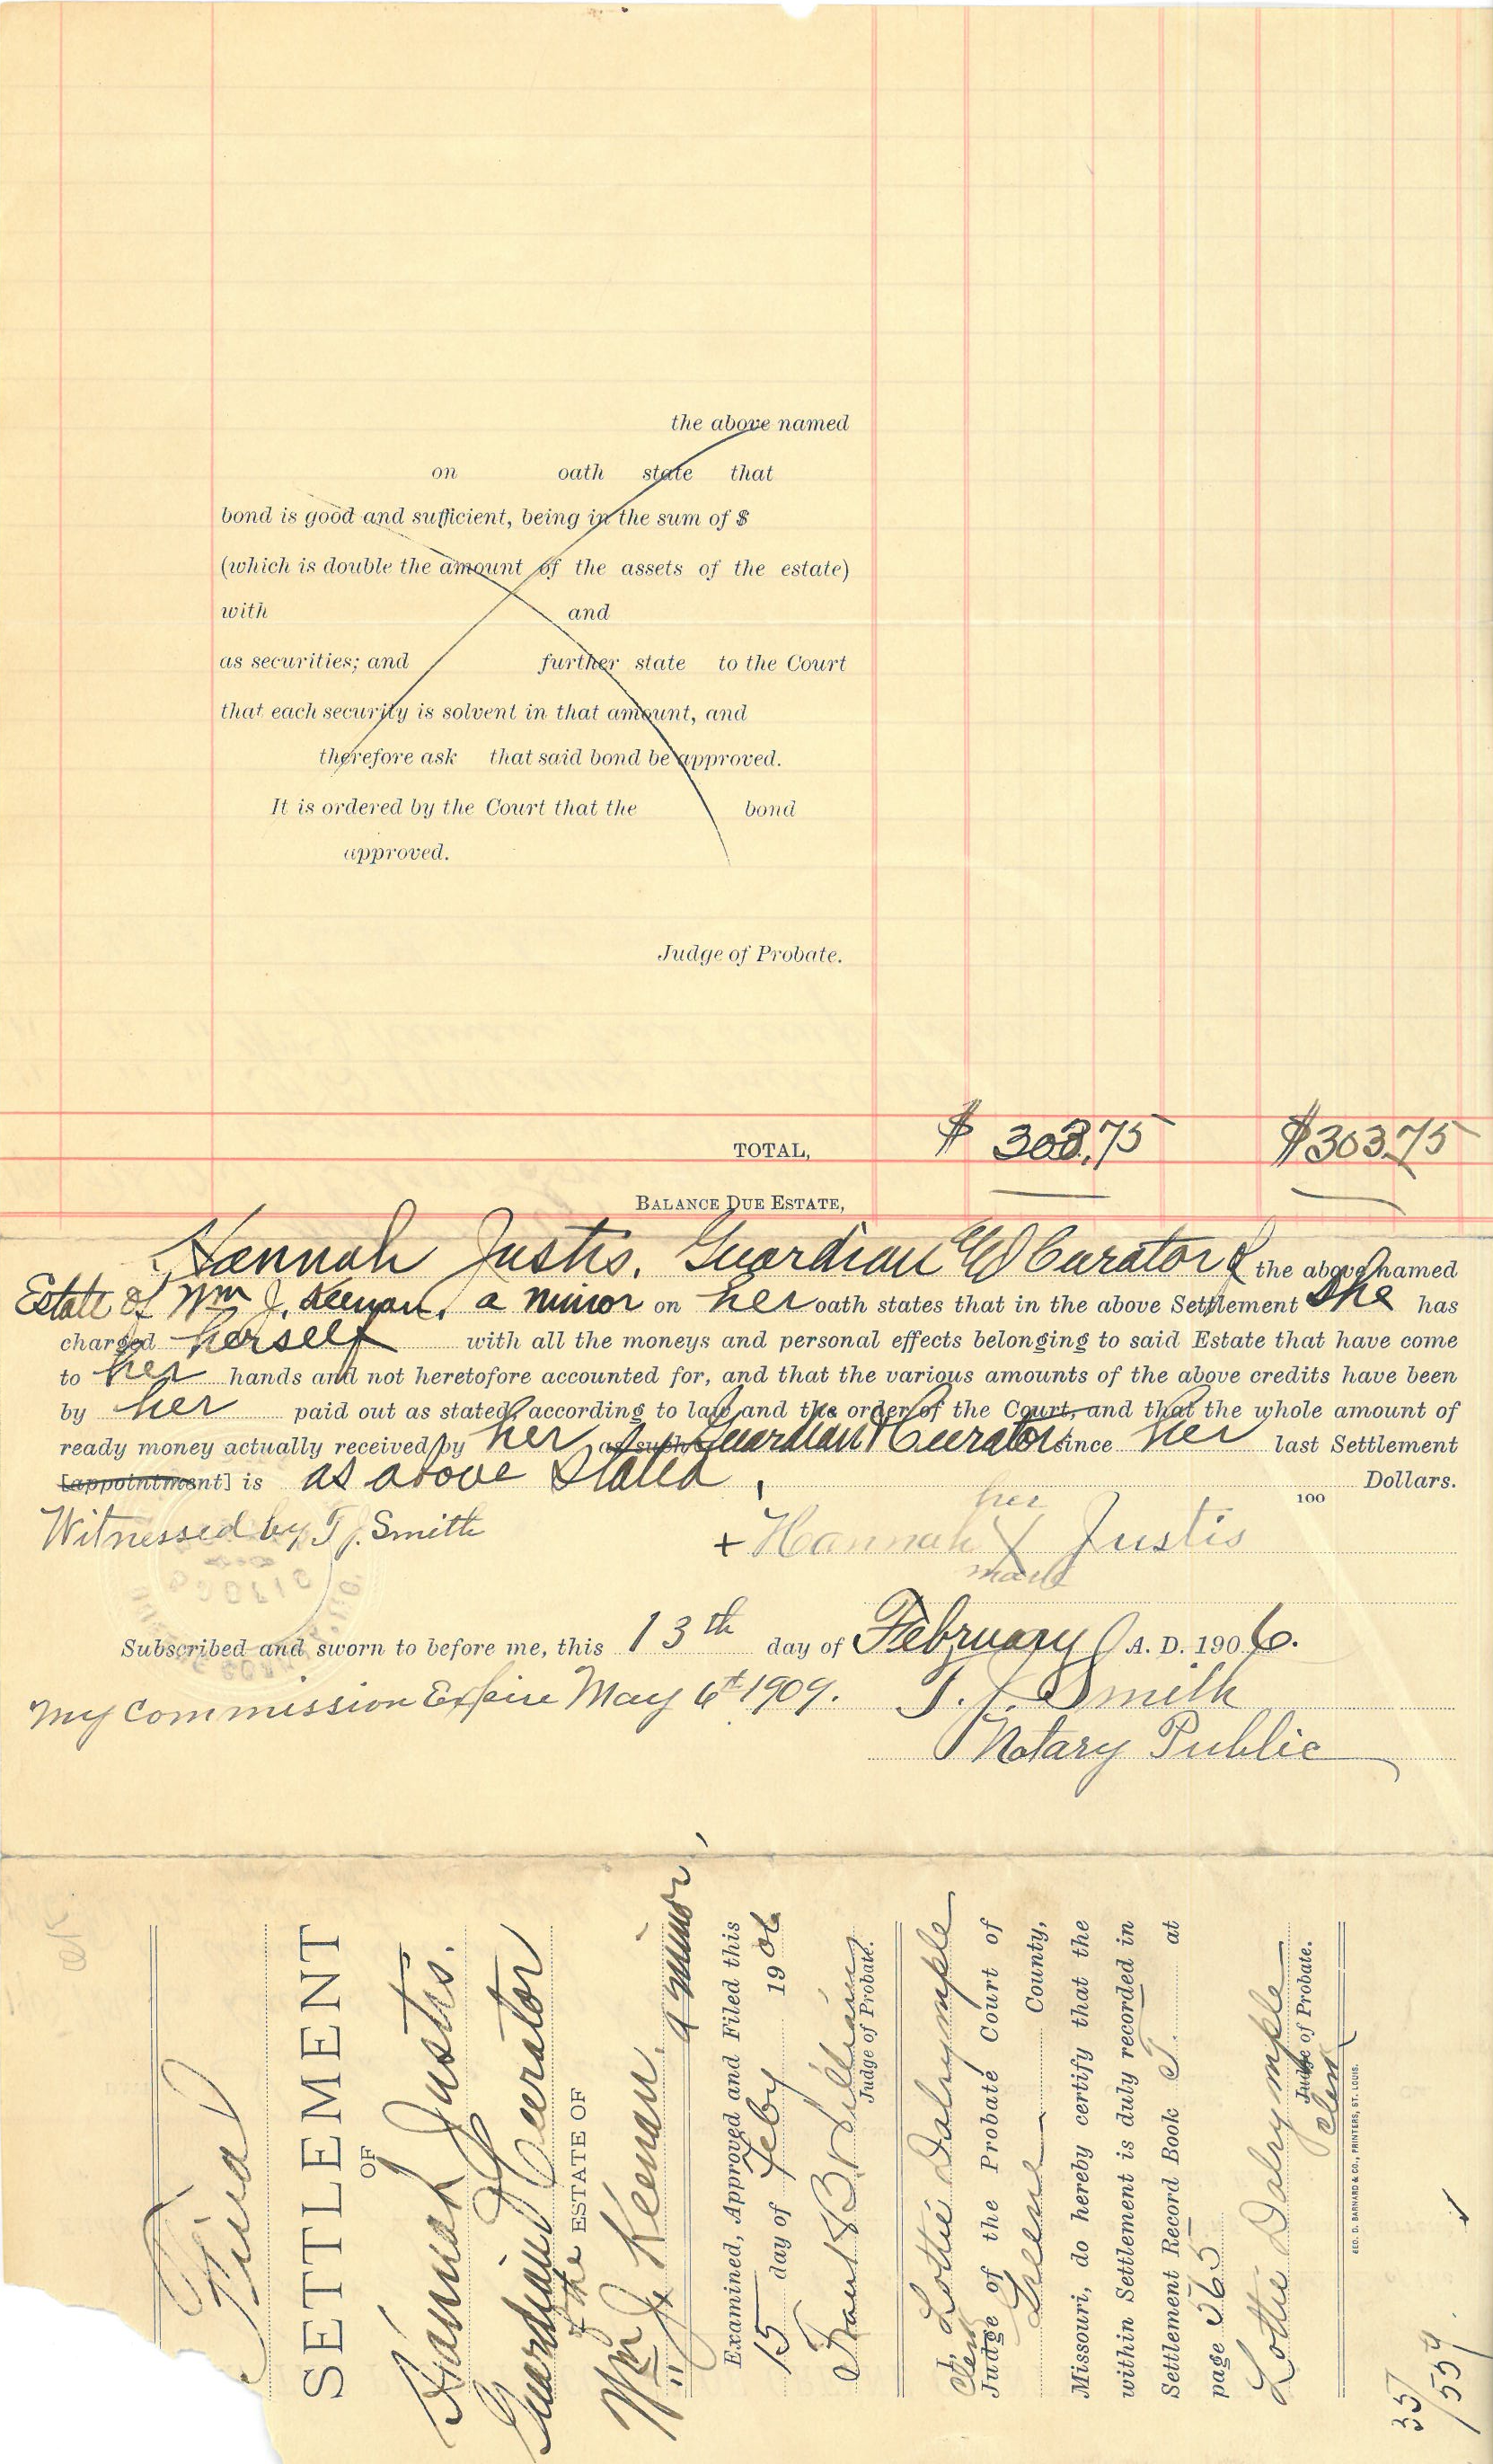 the above named
on oath state that
bond is good and sufficient, being in the sum of $
(which is double the amount of the assets of the estate)
with and
as securities; and further state to the Court
that each security is solvent in that amount, and
therefore ask that said bond be approved.
It is ordered by the Court that the bond
approved.
Judge of Probate.
TOTAL, $ 303.75 $303.75
BALANCE DUE ESTATE,
Hannah Justis, Guardian and Curator of the above named
Estate of Wm J. Keenan, a minor on her oath states that in the above Settlement She has
charged herself with all the moneys and personal effects belonging to said Estate that have come
to her hands and not heretofore accounted for, and that the various amounts of the above credits have been
by her paid out as stated, according to law and the order of the Court, and that the whole amount of
ready money actually received by her as such Guardian & Curator since her last Settlement
[appointment] is as above Stated, Dollars.
100
Witnessed by T. J. Smith
her
+ Hannah X Justis
mark
Subscribed and sworn to before me, this 13th day of February A. D. 1906.
My Commission Expire May 6th 1909. T. J. Smith
Notary Public
Final
SETTLEMENT
OF
Hannah Justis.
Guardian & Curator
of the ESTATE OF
Wm J. Keenan, a minor
Examined, Approved and Filed this
15 day of Feby 1906
Judge of Probate.
I, Lottie Dalrymple
Clerk
Judge of the Probate Court of
Greene County,
Missouri, do hereby certify that the
within Settlement is duly recorded in
Settlement Record Book T. at
page 565
Lottie Dalrymple
Judge of Probate.
Clerk
GEO. D. BARNARD & CO., PRINTERS, ST. LOUIS.
35/554